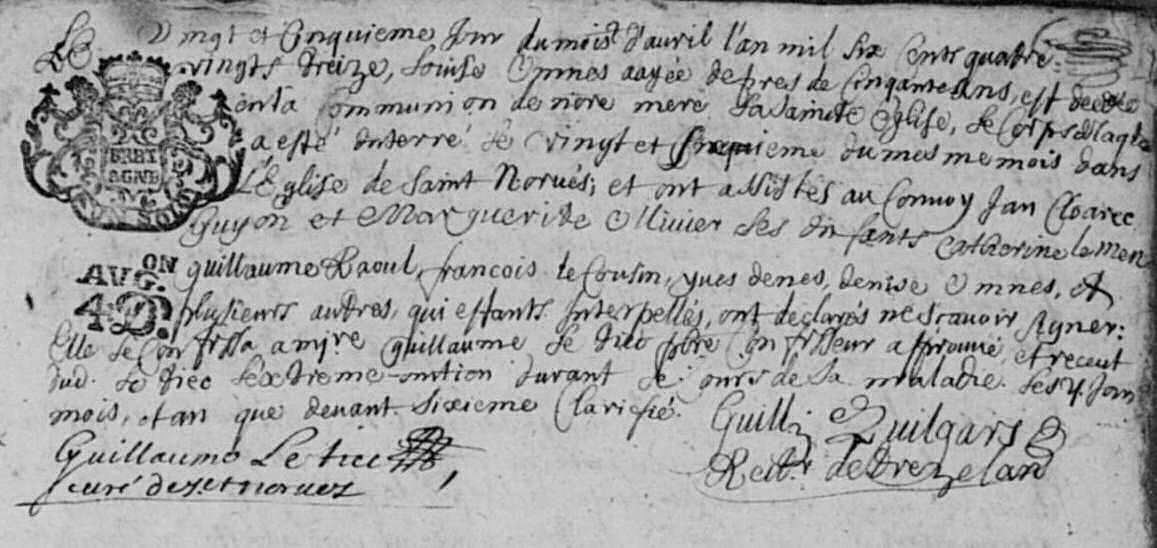 Le vingt et cinquieme Jour du mois d'avril l'an mil six cents quatre
vingts treize, Louise Omnes aagée de pres de cinqante ans, est decedée
en la Communion de notre mere la Sainte Eglise, le Corps de laqle
a esté Interré le vingt et cinquieme du mesme mois dans
L'Eglise de Saint Norvés; et ont assistés au Convoy Jan Cloarec
Guyon et Marguerite Ollivier ses enfants Catherine le Men
guillaume Raoul, francois le Cousin, yves denes, denise Omnes, et
plusieurs autres, qui effants Interpellés, ont declarés ne scavoir signer.
Elle se Confessa a mire guillaume le tiec pbre Confesseur approuvé, et receut
dud. le tiec l'extreme-onction durant le cours de sa maladie. les Jour
mois, et an que devant. sixieme Clarifié.
BRET
AGNE
ON
AVG.
4 D.
Guill Quilgars
Rectr de trezelan
Guillaume Le tiec
curé de st norvez